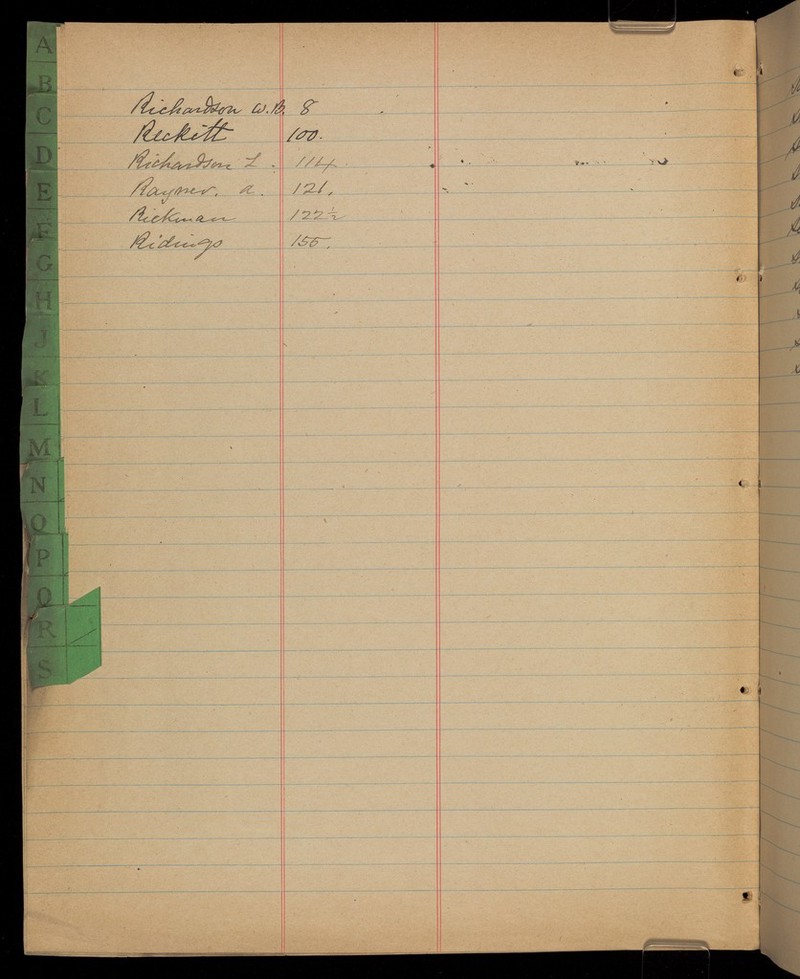 A
B
C
D
E
F
G
H
J
K
L
M
N
O
P
Q
R
S
Richardson W.B. 8
Reckitt 100.
Richardson L. 114.
Rayner. A. 121.
Rickman 122½
Ridings 155.